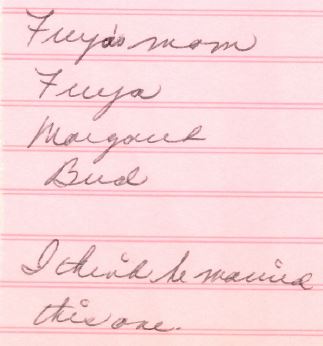 Freya's mom
Freya
Margaret
Bud
I think he married
this one.